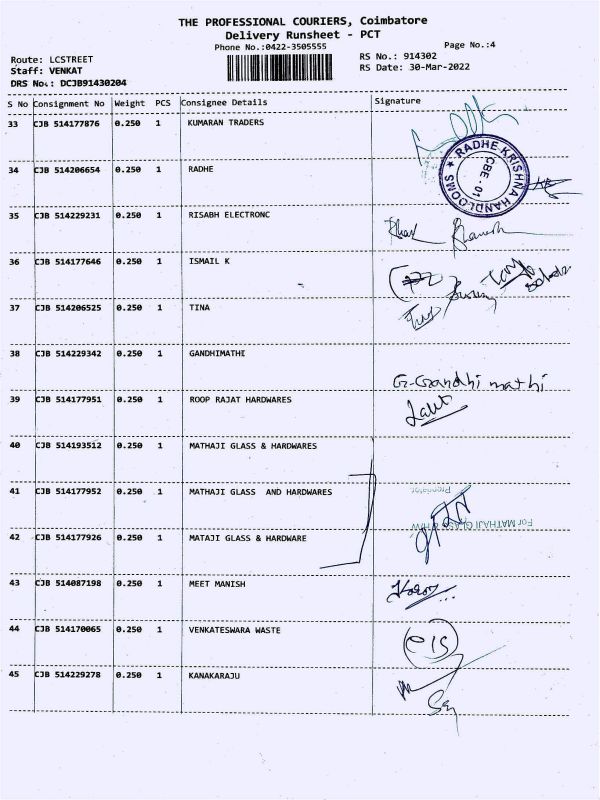 THE PROFESSIONAL COURIERS, Coimbatore
Delivery Runsheet - PCT
Phone No.:0422-3505555
Page No.:4
Route: LCSTREET
RS No.: 914302
Staff: VENKAT
RS Date: 30-Mar-2022
DRS No.: DCJB91430204
S No Consignment No Weight PCS Consignee Details Signature
33 CJB 514177876 0.250 1 KUMARAN TRADERS
RADHE KRISHNA HANDLOOMS
CBE - 01
34 CJB 514206654 0.250 1 RADHE
35 CJB 514229231 0.250 1 RISABH ELECTRONC
36 CJB 514177646 0.250 1 ISMAIL K
37 CJB 514206525 0.250 1 TINA
38 CJB 514229342 0.250 1 GANDHIMATHI
G. Gandhi mathi
39 CJB 514177951 0.250 1 ROOP RAJAT HARDWARES
40 CJB 514193512 0.250 1 MATHAJI GLASS & HARDWARES
41 CJB 514177952 0.250 1 MATHAJI GLASS AND HARDWARES
Proprietor
For MATHAJI GLASS & H/W
42 CJB 514177926 0.250 1 MATAJI GLASS & HARDWARE
43 CJB 514087198 0.250 1 MEET MANISH
44 CJB 514170065 0.250 1 VENKATESWARA WASTE
45 CJB 514229278 0.250 1 KANAKARAJU